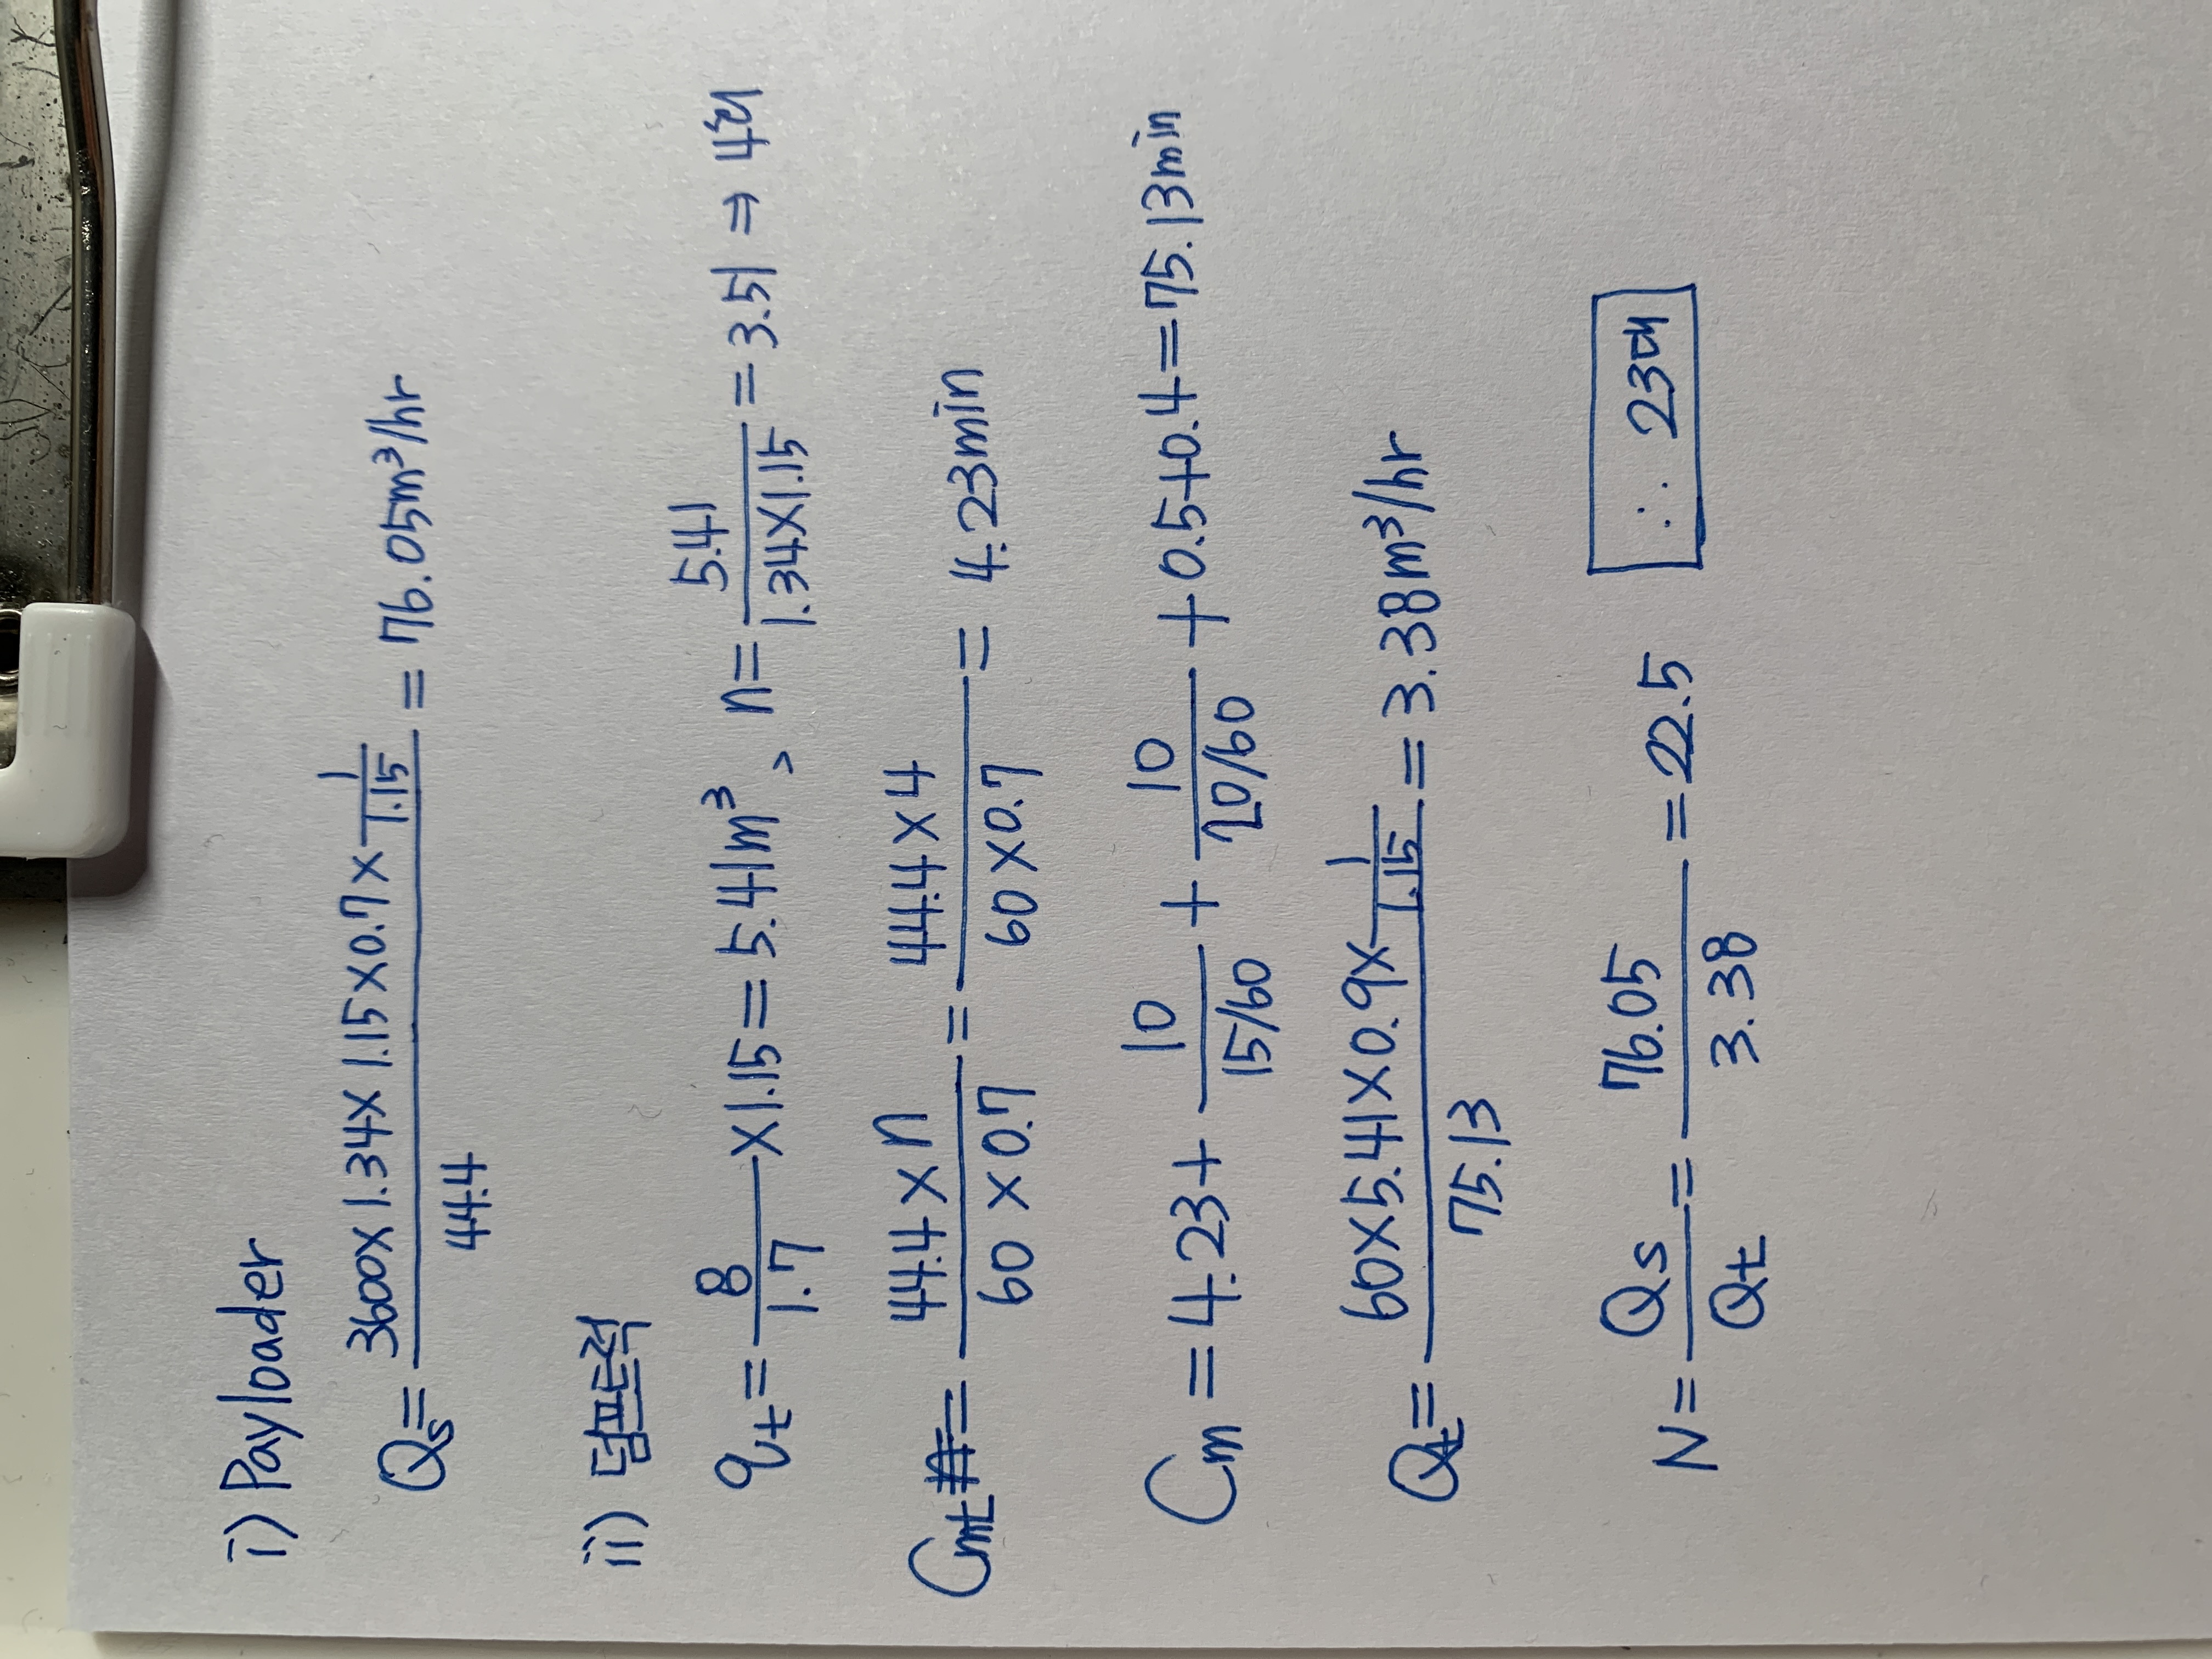 i) Payloader
Qs = (3600 x 1.34 x 1.15 x 0.7 x 1/1.15) / 44.4 = 76.05m³/hr
ii) 덤프트럭
qt = 8/1.7 x 1.15 = 5.41m³, n = 5.41/(1.34x1.15) = 3.51 ⇒ 4회
Cmt = (44.4 x n)/(60 x 0.7) = (44.4 x 4)/(60 x 0.7) = 4.23min
Cm = 4.23 + 10/(15/60) + 10/(20/60) + 0.5+0.4 = 75.13min
Qt = (60x5.41x0.9x 1/1.15) / 75.13 = 3.38m³/hr
N = Qs/Qt = 76.05/3.38 = 22.5 ∴ 23대